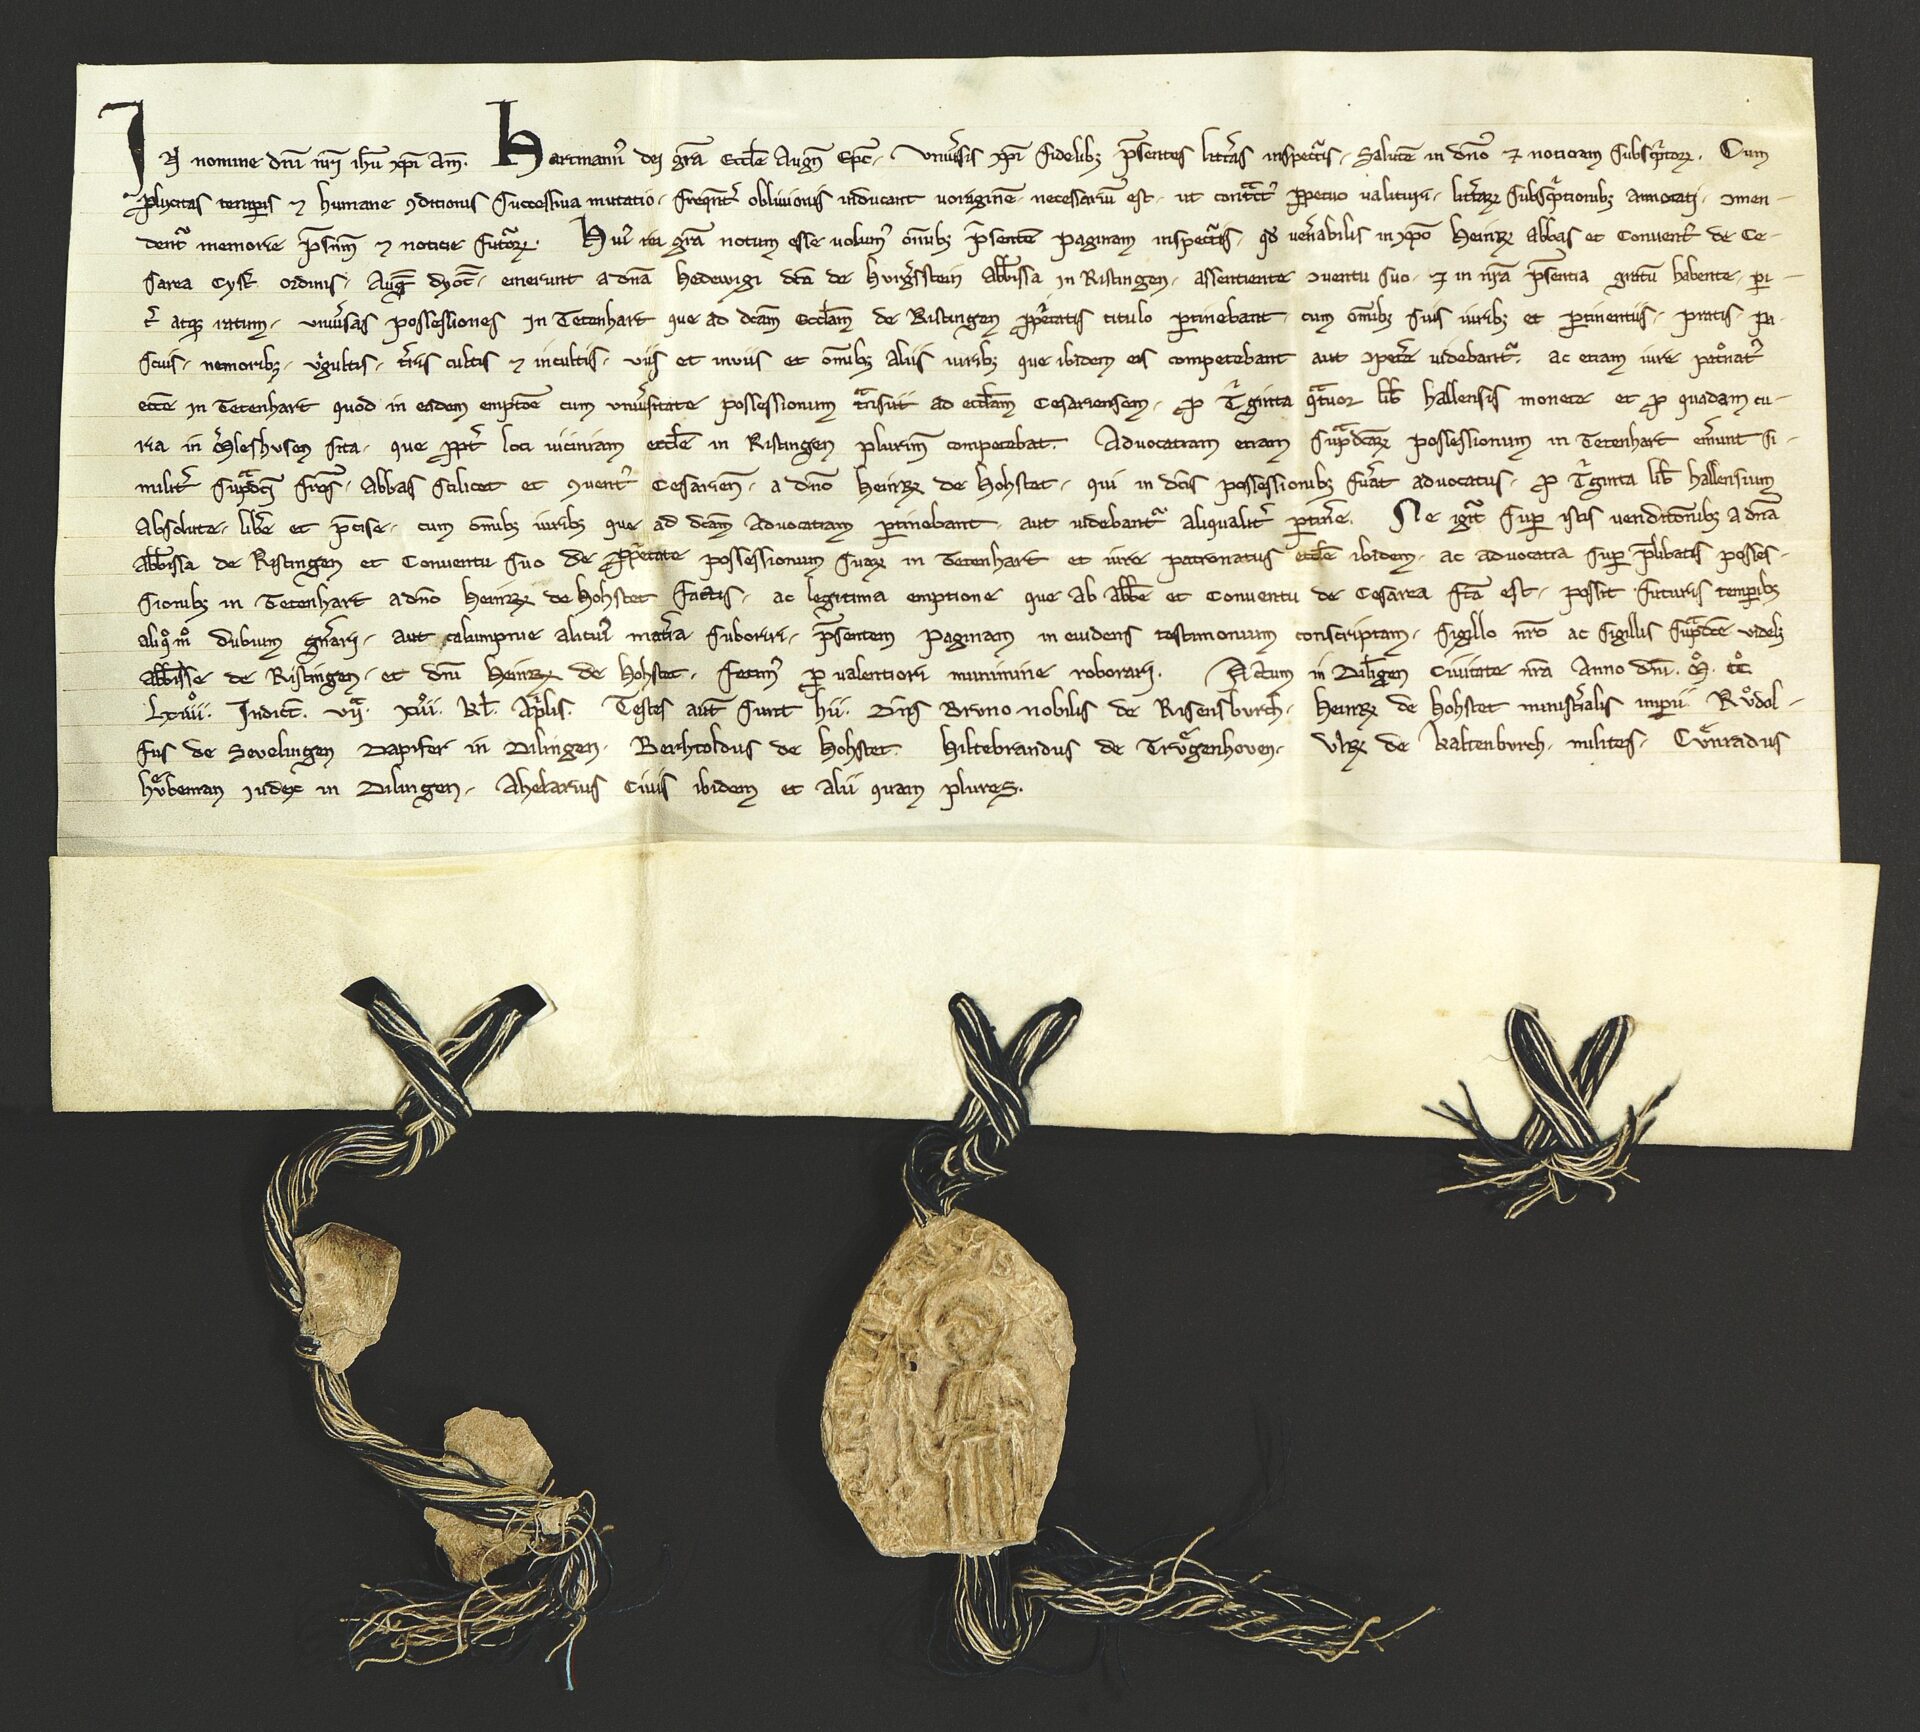 IN nomine dn̄i nr̄i ih̄u xp̄i Am̄. Hartmann᷒ dei gr̄a Eccl̄e Aug᷒n Ep̄c. Vniu̾sis xp̄i fidelibꝫ p̄sentes litt̾as inspectur᷒is. Salutē in dn̄o ⁊ noticiam subscp͛torꝝ. Cum
plixitas temꝑis ⁊ humane ꝯditionis successiua mutatio. freqn̄t̾ obliuionis inducant uoraginē. necessariū est. ut ꝑpetuo ualituri. litt̾arꝝ subscp͛tionibꝫ annotati. ꝯmen-
dent᷒ memorie p̄sentiū ⁊ noticie futurꝝ. Hui᷒ rei gr̄a notum esse uolum᷒ om̄ibꝫ p̄sentē paginam inspectur᷒is. qd̄ uen̾abilis in xp̄o Heinrꝝ Abbas et Conuent᷒ de Ce-
sarea Cysť ordinis. Aug᷒ dyoc̄. emerunt a dn̄a Hedewigi dc̄a de Hvrg̾sstein Abb̄issa in Ristingen. assentiente ꝯuentu suo. ⁊ in nr̄a p̄sentia gratū habente. pi-
t̾ atqꝫ ratum. vniu̾sas possessiones in Tetenhart que ad dc̄am Eccl̄am de Ristingen ꝓp͛etatis titulo ꝑtinebant. cum om̄ibꝫ suis iuribꝫ et ꝑtinentiis. pratis. pa-
scuis. nemoribꝫ. v͛gultis. t̾ris cultis ⁊ incultis. viis et inuiis et om̄ibꝫ aliis iuribꝫ que ibidem eis competebant aut ꝯpet̾e uidebant᷒. ac etiam iure pat͛onat᷒
ecc̄e in Tetenhart quod in eadem emptōe cum vniu̾sitate possessionum t͛nsiuit ad eccl̄am Cesariensem. ꝓ T͛ginta q͛tuor lib̄ hallensis monete et ꝓ quadam cu-
ria in sita. que ꝓpt̾ loci uiciniam eccl̄e in Ristingen plurim̄ competebat. Aduocatiam etiam sup͛dc̄arꝝ possessionum in Tetenhart em̾unt si-
milit̾ sup͛dc̄i fr̄es. Abbas scilicet et ꝯuent᷒ Cesarien̄. a dn̄o Heinrꝝ de Hohstet. qui in dc̄is possessionibꝫ fu̾at aduocatus. ꝓ T͛ginta lib̄ hallensium
absolute. lib̾e et p̄cise. cum om̄ibꝫ iuribꝫ que ad dc̄am Aduocatiam ꝑtinebant. aut uidebant᷒ aliqualit̾ ꝑtin̾e. Ne igit᷒ suꝑ istis uenditionibꝫ a dn̄a
Abb̄issa de Ristingen et Conuentu suo de ꝓp͛etate possessionum suarꝝ in Tetenhart et iure patronatus eccl̄e ibidem. ac aduocatia suꝑ p̄libatis posses-
sionibꝫ in Tetenhart a dn̄o Heinrꝝ de Hohstet factis. ac legitima emptione que ab Abb̄e et Conuentu de Cesarea fc̄a est. possit futuris temꝑibꝫ
aliqͦ mͦ dubium gn̾ari. aut calumpnie alicui᷒ mat̾ia suboriri. p̄sentem paginam in euidens testimonium conscriptam. sigillo nr̄o ac sigillis sup͛dc̄e videlꝫ
Abb̄isse de Ristingen. et dn̄i Heinrꝝ de Hohstet. fecim᷒ ꝓ ualentiori munimine roborari. Actum in Dilīgen Ciuitate nr̄a Anno dn̄i. Mͦ. CCͦ.
LXiiiiͦ. Indict̄. viiͣ. Xiiiͦ. kl̄. Ap͛lis. Testes aut̄ sunt hii. Dn̄s Bruno nobilis de Risensburch. Heinrꝝ de Hohstet minist̾ialis imꝑii. Rvͦdol-
fus de Sevelingen Dapifer in Dilingen. Berhtoldus de Hohstet. Hiltebrandus de Trvgenhouen. Vlrꝝ de kaltenburch. milites. Cvͦnradus
hvͤbeman Judex in Dilingen. Ahelarius Ciuis ibidem et alii quam plures.